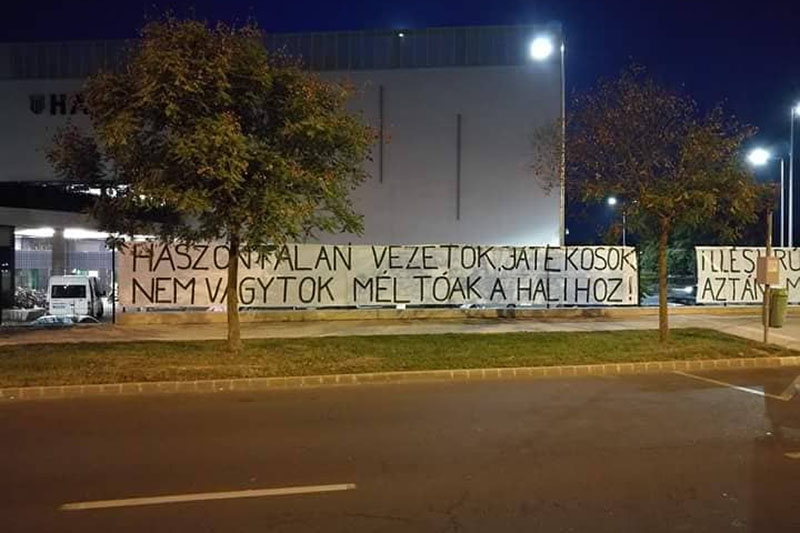 HA
HASZONTALAN VEZETOK, JÁTÉKOSOK
NEM VAGYTOK MÉLTÓAK A HALIHOZ!
AZTÁN